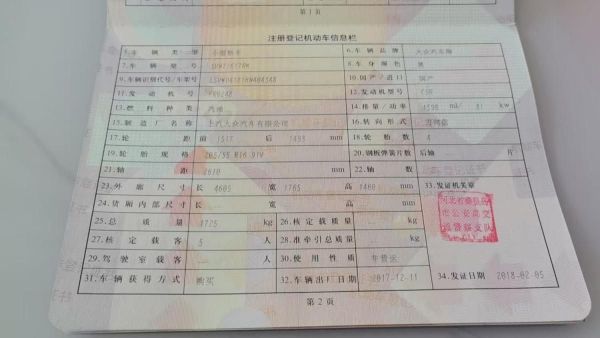 第1页
注册登记机动车信息栏
5.车辆类型 小型轿车 6.车辆品牌 大众汽车牌
7.车辆型号 8.车身颜色 黑
9.车辆识别代号/车架号 10.国产/进口 国产
11.发动机号 12.发动机型号
13.燃料种类 汽油 14.排量/功率 1598 ml/ 81 kw
15.制造厂名称 上汽大众汽车有限公司 16.转向形式 方向盘
17.轮距 前 1517 后 1493 mm 18.轮胎数 4
19.轮胎规格 205/55 R16 91V 20.钢板弹簧片数 后轴 片
21.轴距 2610 mm 22.轴数 2
23.外廓尺寸 长 4605 宽 1765 高 1460 mm 33.发证机关章
24.货厢内部尺寸 长 宽 高 mm
25.总质量 1725 kg 26.核定载质量 kg
27.核定载客 5 人 28.准牵引总质量 kg
29.驾驶室载客 人 30.使用性质 非营运
31.车辆获得方式 购买 32.车辆出厂日期 2017-12-11 34.发证日期 2018-02-05
第2页